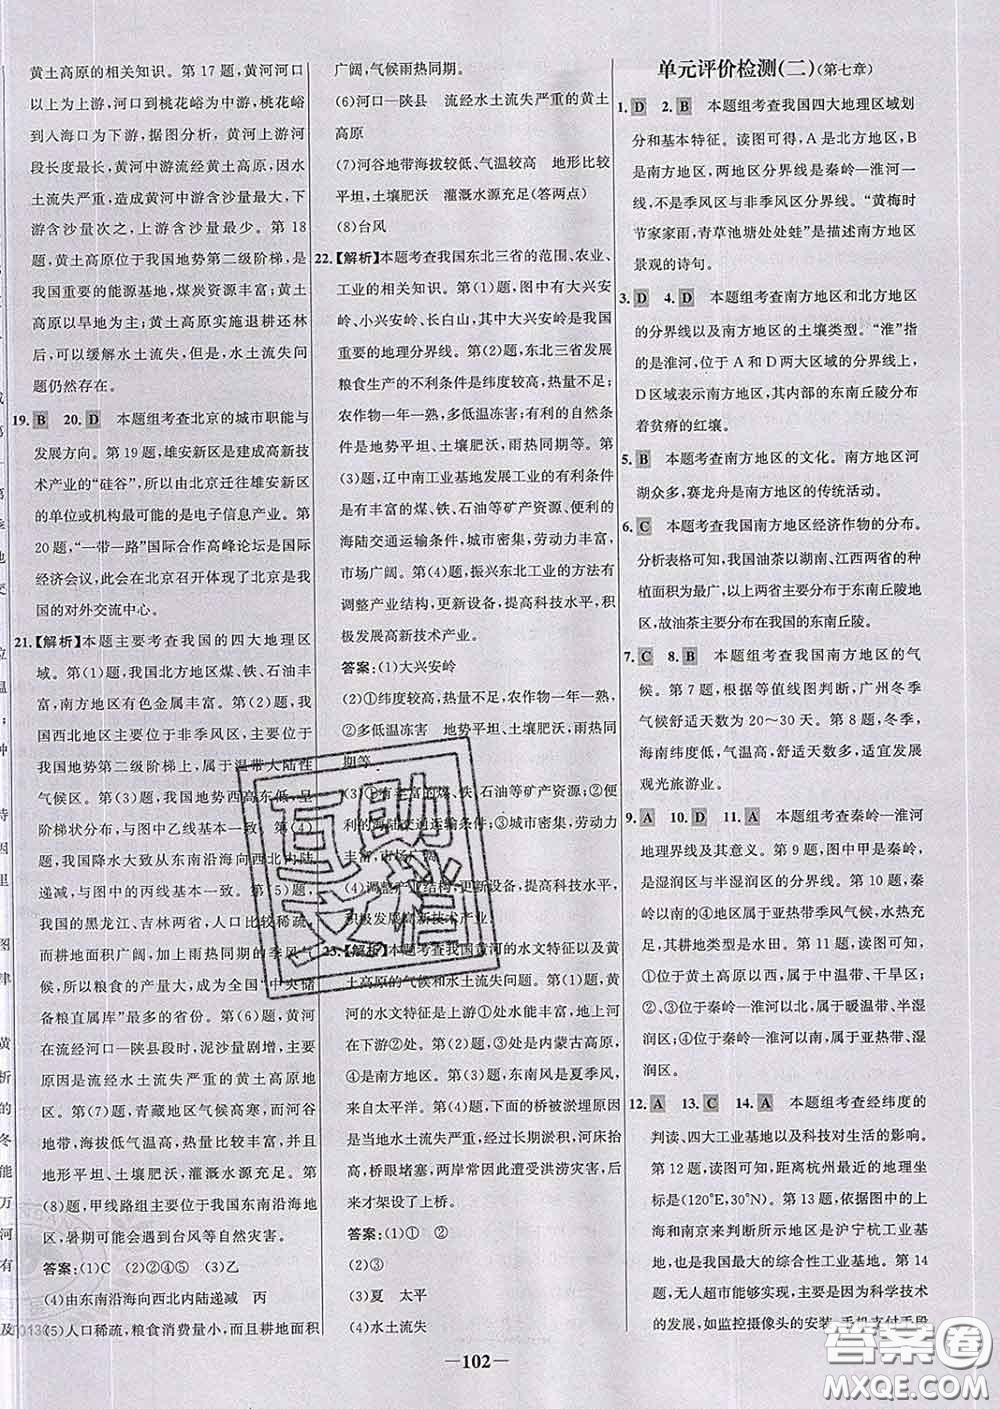 黄土高原的相关知识。第17题,黄河河口
以上为上游,河口到桃花峪为中游,桃花峪
到入海口为下游,据图分析,黄河上游河
段长度最长,黄河中游流经黄土高原,因水
土流失严重,造成黄河中游含沙量最大,下
游含沙量次之,上游含沙量最少。第18
题,黄土高原位于我国地势第二级阶梯,是
我国重要的能源基地,煤炭资源丰富;黄土
高原以旱地为主;黄土高原实施退耕还林
后,可以缓解水土流失,但是,水土流失问
题仍然存在。
19. B 20. D 本题组考查北京的城市职能与
发展方向。第19题,雄安新区是建成高新技
术产业的“硅谷”,所以由北京迁往雄安新区
的单位或机构最可能的是电子信息产业。第
20题,“一带一路”国际合作高峰论坛是国际
经济会议,此会在北京召开体现了北京是我
国的对外交流中心。
21.【解析】本题主要考查我国的四大地理区
域。第(1)题,我国北方地区煤、铁、石油丰
富,南方地区有色金属丰富。第(2)题,我
国西北地区主要位于非季风区,主体位于我
国地势第二级阶梯上,属于温带大陆性
气候区。第(3)题,我国地势西高东低,呈
阶梯状分布,与图中乙线基本一致。第(4)
题,我国降水大致从东南沿海向西北内陆
递减,与图中的丙线基本一致。第(5)题,
我国的黑龙江、吉林两省,人口比较稀疏,
而耕地面积广阔,加上雨热同期的季风气
候,所以粮食的产量大,成为全国“中央储
备粮直属库”最多的省份。第(6)题,黄河
在流经河口—陕县段时,泥沙量剧增,主要
原因是流经水土流失严重的黄土高原地区。
第(7)题,青藏地区气候高寒,而河谷
地带,海拔低气温高,热量比较丰富,并且
地形平坦、土壤肥沃,灌溉水源充足。第
(8)题,甲线路组主要位于我国东南沿海地
区,暑期可能会遇到台风等自然灾害。
答案:(1)C (2)②④⑤ (3)乙
(4)由东南沿海向西北内陆递减 丙
(5)人口稀疏,粮食消费量小,而且耕地面积
广阔,气候雨热同期。
(6)河口—陕县 流经水土流失严重的黄土
高原
(7)河谷地带海拔较低、气温较高 地形比较
平坦,土壤肥沃 灌溉水源充足(答两点)
(8)台风
22.【解析】本题考查我国东北三省的范围、农业、
工业的相关知识。第(1)题,图中有大兴安
岭、小兴安岭、长白山,其中大兴安岭是我国
重要的地理分界线。第(2)题,东北三省发展
粮食生产的不利条件是纬度较高,热量不足,
农作物一年一熟,多低温冻害;有利的自然条
件是地势平坦、土壤肥沃,雨热同期等。第
(3)题,辽中南工业基地发展工业的有利条件
是有丰富的煤、铁、石油等矿产资源,便利的
海陆交通运输条件,城市密集,劳动力丰富,
市场广阔。第(4)题,振兴东北工业的方法有
调整产业结构,更新设备,提高科技水平,积
极发展高新技术产业。
答案:(1)大兴安岭
(2)①纬度较高,热量不足,农作物一年一熟,
②多低温冻害 地势平坦、土壤肥沃,雨热同
期等
(3)①有丰富的煤、铁、石油等矿产资源;②便
利的海陆交通运输条件;③城市密集,劳动力
丰富,市场广阔
(4)调整产业结构,更新设备,提高科技水平,
积极发展高新技术产业
23.【解析】本题考查我国黄河的水文特征以及黄
土高原的气候和水土流失问题。第(1)题,黄
河的水文特征是上游①处水能丰富,地上河
在下游②处。第(2)题,③处是内蒙古高原,
主要是牧业区。第(3)题,东南风是夏季风,
来自太平洋。第(4)题,下面的桥被淤埋的原
因是当地水土流失严重,经长期淤积,河床抬
高,桥眼堵塞,两岸常因此遭受洪涝灾害,
后来才架设了上桥。
答案:(1)① ②
(2)③
(3)夏 太平
(4)水土流失
单元评价检测(二)(第七章)
1. D 2. B 本题组考查我国四大地理区域划
分和基本特征。读图可得,A是北方地区,B
是南方地区,两地区分界线是秦岭—淮河一
线,不是季风区与非季风区分界线。“黄梅时
节家家雨,青草池塘处处蛙”是描述南方地区
景观的诗句。
3. D 4. D 本题组考查南方地区和北方地区
的分界线以及南方地区的土壤类型。“淮”指
的是淮河,位于A和D两大区域的分界线上,
D区域是南方地区,其内部的东南丘陵分布
着贫瘠的红壤。
5. B 本题考查南方地区的文化。南方地区河
湖众多,赛龙舟是南方地区的传统活动。
6. C 本题考查我国南方地区经济作物的分布。
分析表格可知,我国油茶以湖南、江西两省的种
植面积为最广,以上两省主要位于东南丘陵地
区,故油茶主要分布在我国的东南丘陵。
7. C 8. B 本题组考查我国南方地区的气
候。第7题,根据等值线图判断,广州冬季
气候舒适天数为20～30天。第8题,冬季,
海南纬度低,气温高,舒适天数多,适宜发展
观光旅游业。
9. A 10. D 11. A 本题组考查秦岭—淮河
地理界线及其意义。第9题,图中甲是秦岭,
是湿润区与半湿润区的分界线。第10题,秦
岭以南的④地区属于亚热带季风气候,水热充
足,其耕地类型是水田。第11题,读图可知,
①位于黄土高原以西,属于中温带、干旱区,
②、③位于秦岭—淮河以北,属于暖温带、半湿
润区;④位于秦岭—淮河以南,属于亚热带、湿
润区。
12. A 13. C 14. A 本题组考查经纬度的
判读、四大工业基地以及科技对生活的影响。
第12题,读图可知,距离杭州最近的地理坐
标是(120°E,30°N)。第13题,根据图中的上
海和南京来判断所示地区是沪宁杭工业基
地,是我国最大的综合性工业基地。第14
题,无人超市能大大方便生活,享受科学技术
的发展,如监控摄像头的安装、手机支付手段
—102—
互助
文档
答案圈
MXQE.COM